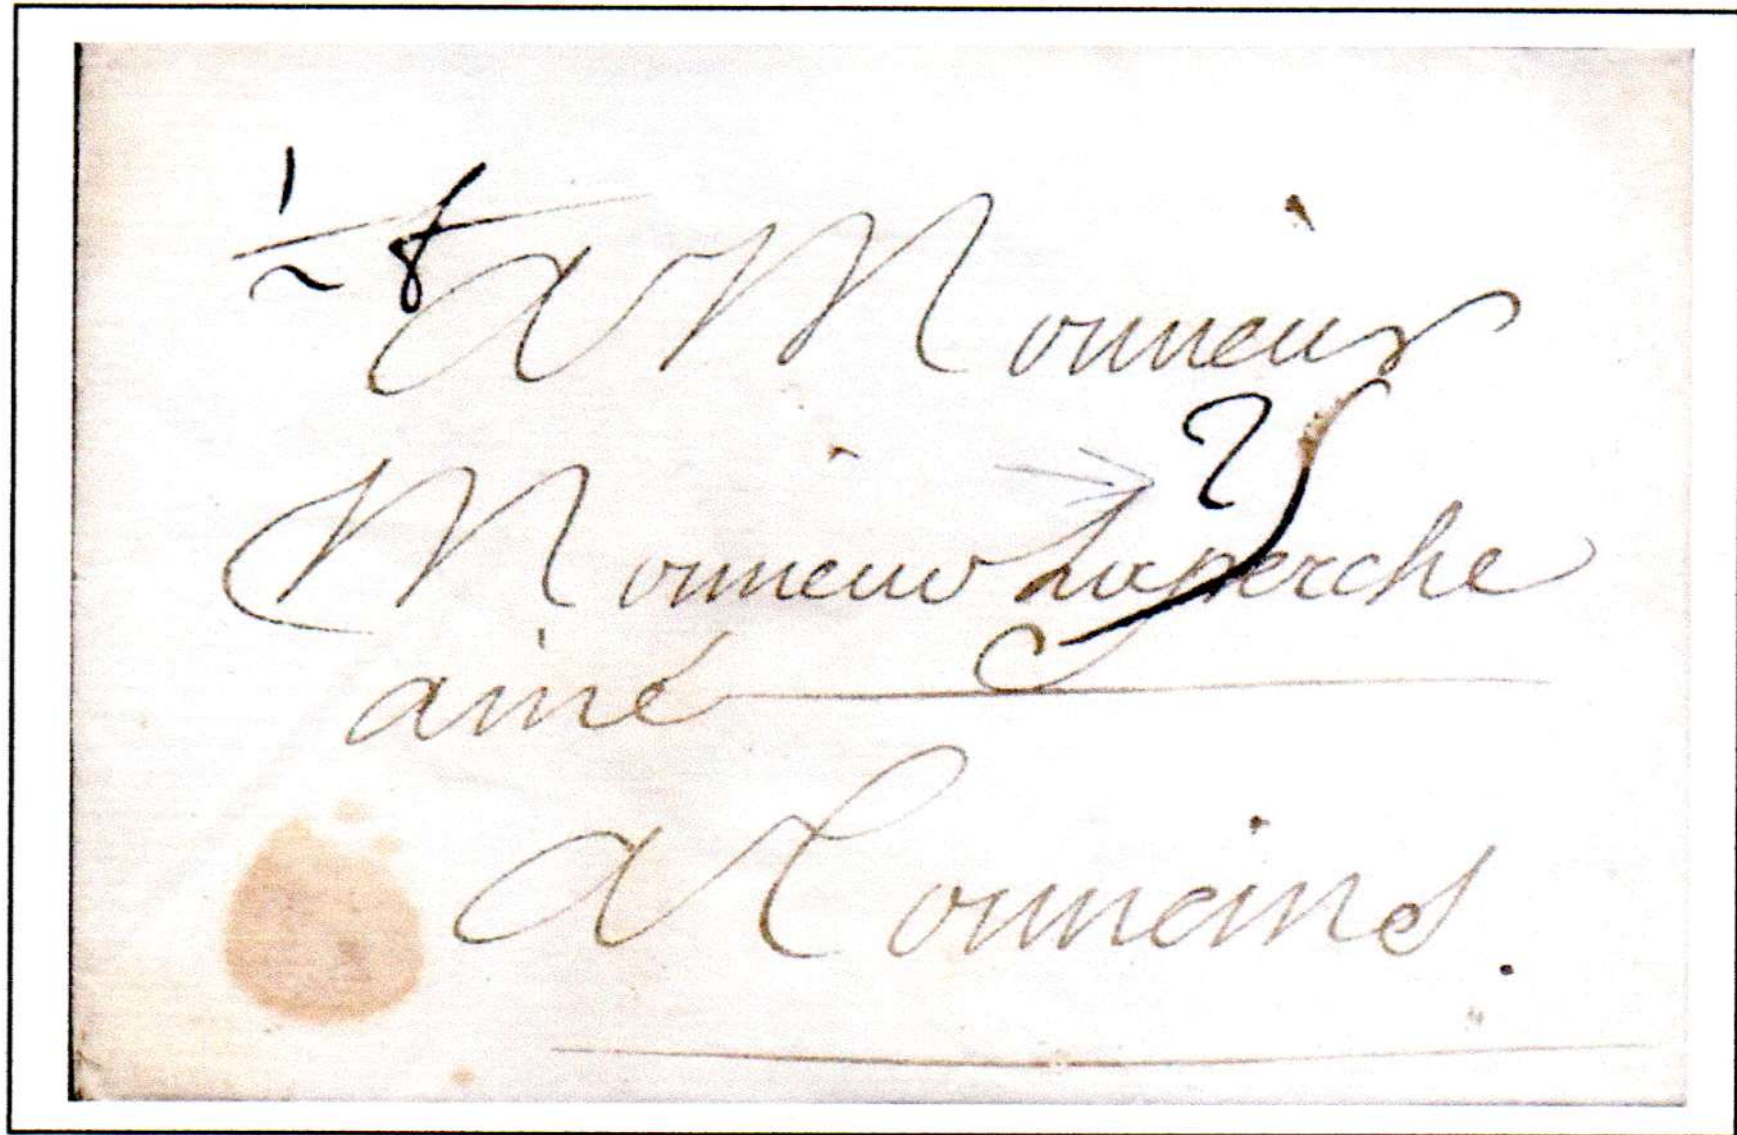 1/2 8
A Monsieur
25
Monsieur Laperche
ainé
A Tonneins.